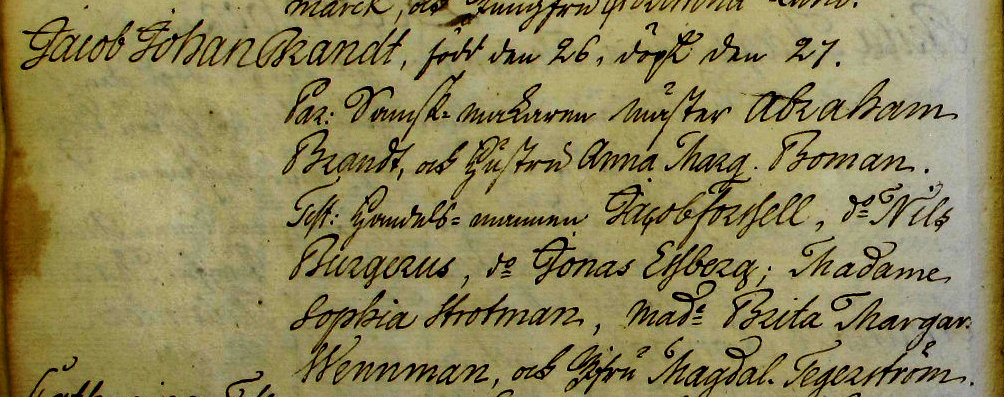 marck, och Jungfru
Jacob Johan Brandt, född den 26, döpt den 27.
Par: Sämsk-makaren Mäster Abraham
Brandt, och Hustru Anna Marg. Boman.
Test: Handels-mannen Jacob Forssell, do Nils
Burgerus, do Jonas Elfberg; Madame
Sophia Strotman, Made Brita Margar:
Wennman, och Jfru Magdal. Tegerström.